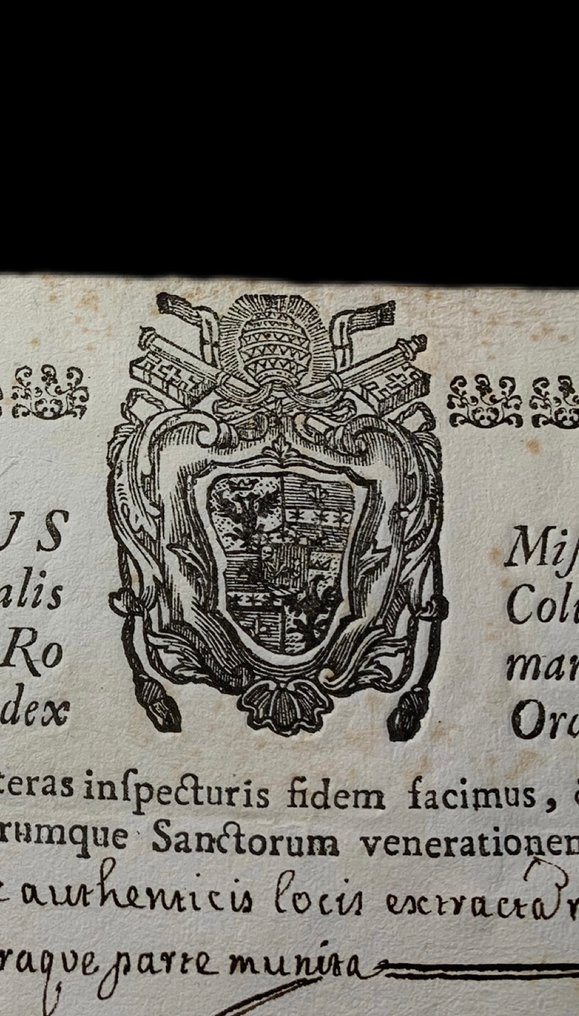 US
alis Miſ
Ro Col
dex mar
Ord
teras inſpecturis fidem facimus,
rumque Sanctorum venerationem
authenticis locis extracta
raque parte munita